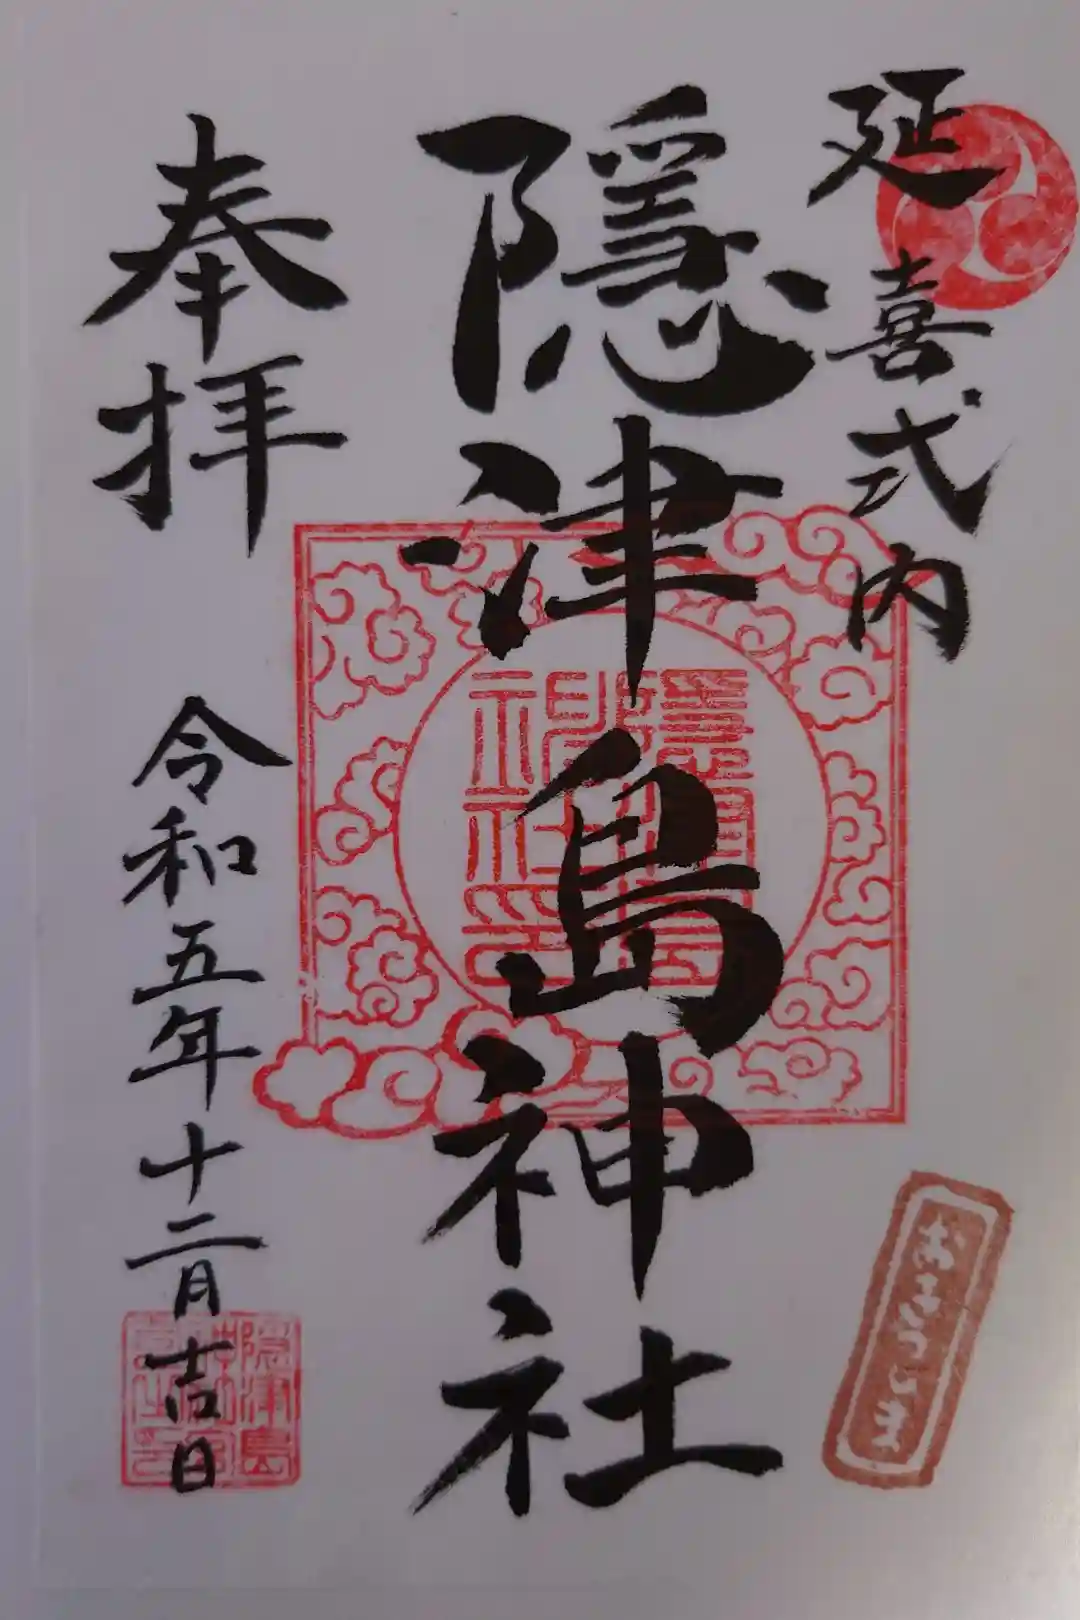 延喜式内
隠津島神社
奉拝
令和五年十二月吉日
おきつしま